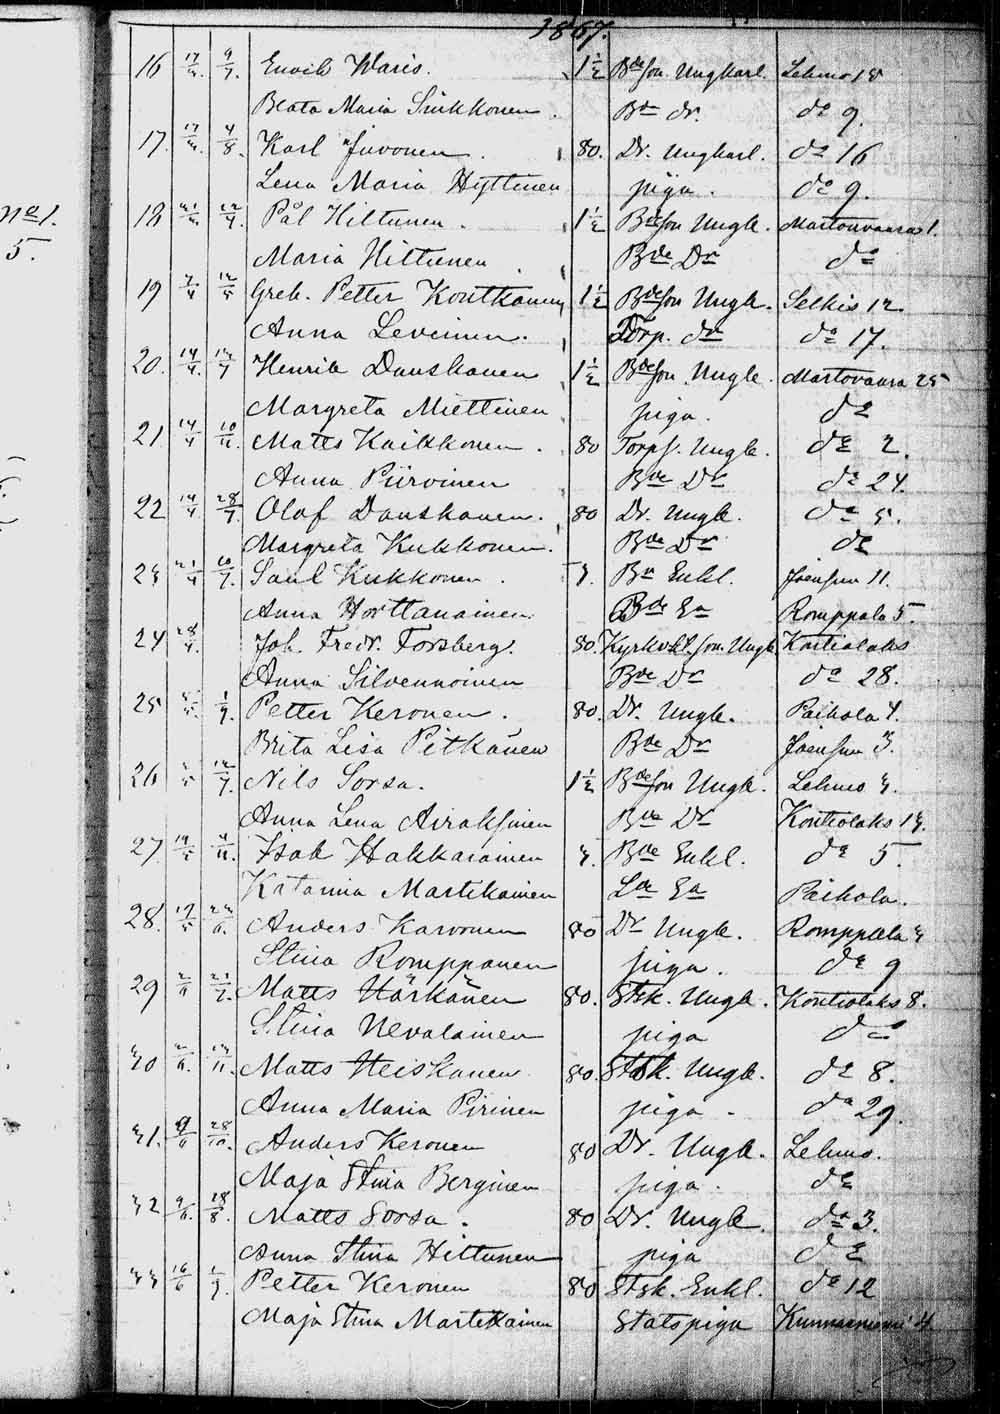 1867.
16 17/3. 9/7. Enoch Waris. 1 1/2 Bdeson Ungkarl. Lehmo 18
Beata Maria Sinkkonen. Bde dr. do 9.
17. 17/3. 4/8. Karl Juvonen. 80. Dr. Ungkarl. do 16
Lena Maria Hyttinen piga. do 9.
No 1. 18 31/3. 12/4. Pål Hiltunen. 1 1/2 Bdeson Ungk. Martonvaara 1.
5. Maria Hiltunen Bde Dr do
19 7/4 12/5 Greh. Petter Kontkanen 1 1/2 Bdeson Ungk. Selkis 12.
Anna Leveinen. Torp. dr do 17.
20. 14/4. 14/7 Henrik Danskanen 1 1/2 Bdeson Ungk. Martovaara 25
Margreta Miettinen piga. do
21 14/4 10/11. Matts Kaikkonen. 80 Torpf. Ungk. do 2.
Anna Piiroinen Bde Dr do 24.
22 14/4 28/7. Olof Danskanen. 80 Dr. Ungk. do 5.
Margreta Kukkonen. Bde Dr do
23 21/4 10/7. Saul Kukkonen. 3. Bde Enkl. Joensuu 11.
Anna Horttanainen Bde Ea Romppala 5.
24 28/4. Joh. Fredr. Forsberg. 80. Kyrkvkt. son. Ungk. Kontiolaks
Anna Silvennoinen Bde Dr do 28.
25 5/5. 1/9. Petter Keronen. 80. Dr. Ungk. Paihola 4.
Brita Lisa Pitkänen Bde Dr Joensuu 3.
26 5/5 14/7. Nils Sorsa. 1 1/2 Bdeson Ungk. Lehmo 3.
Anna Lena Airaksinen Bde Dr Kontiolaks 13.
27 19/5 4/11. Isak Hakkarainen 3. Bde Enkl. do 5.
Katarina Martikainen Lde Ea Paihola.
28. 19/5 24/6. Anders Karvonen 80 Dr Ungk. Romppala 3
Stina Romppanen piga. do 9
29 2/6 21/7. Matts Härkönen 80. Stsk. Ungk. Kontiolaks 8.
Stina Nevalainen piga do
30 2/6. 14/11. Matts Heiskanen 80. Stsk. Ungk. do 8.
Anna Maria Pirinen piga. do 29.
31. 9/6 28/10. Anders Keronen 80 Dr. Ungk. Lehmo.
Maja Stina Berginen piga. do
32 9/6. 18/8. Matts Sorsa. 80 Dr. Ungk. do 3.
Anna Stina Hiltunen piga do
33 16/6 1/9. Petter Keronen 80 Stsk. Enkl. do 12
Maja Stina Martikainen Statspiga Kunnasniemi 4.